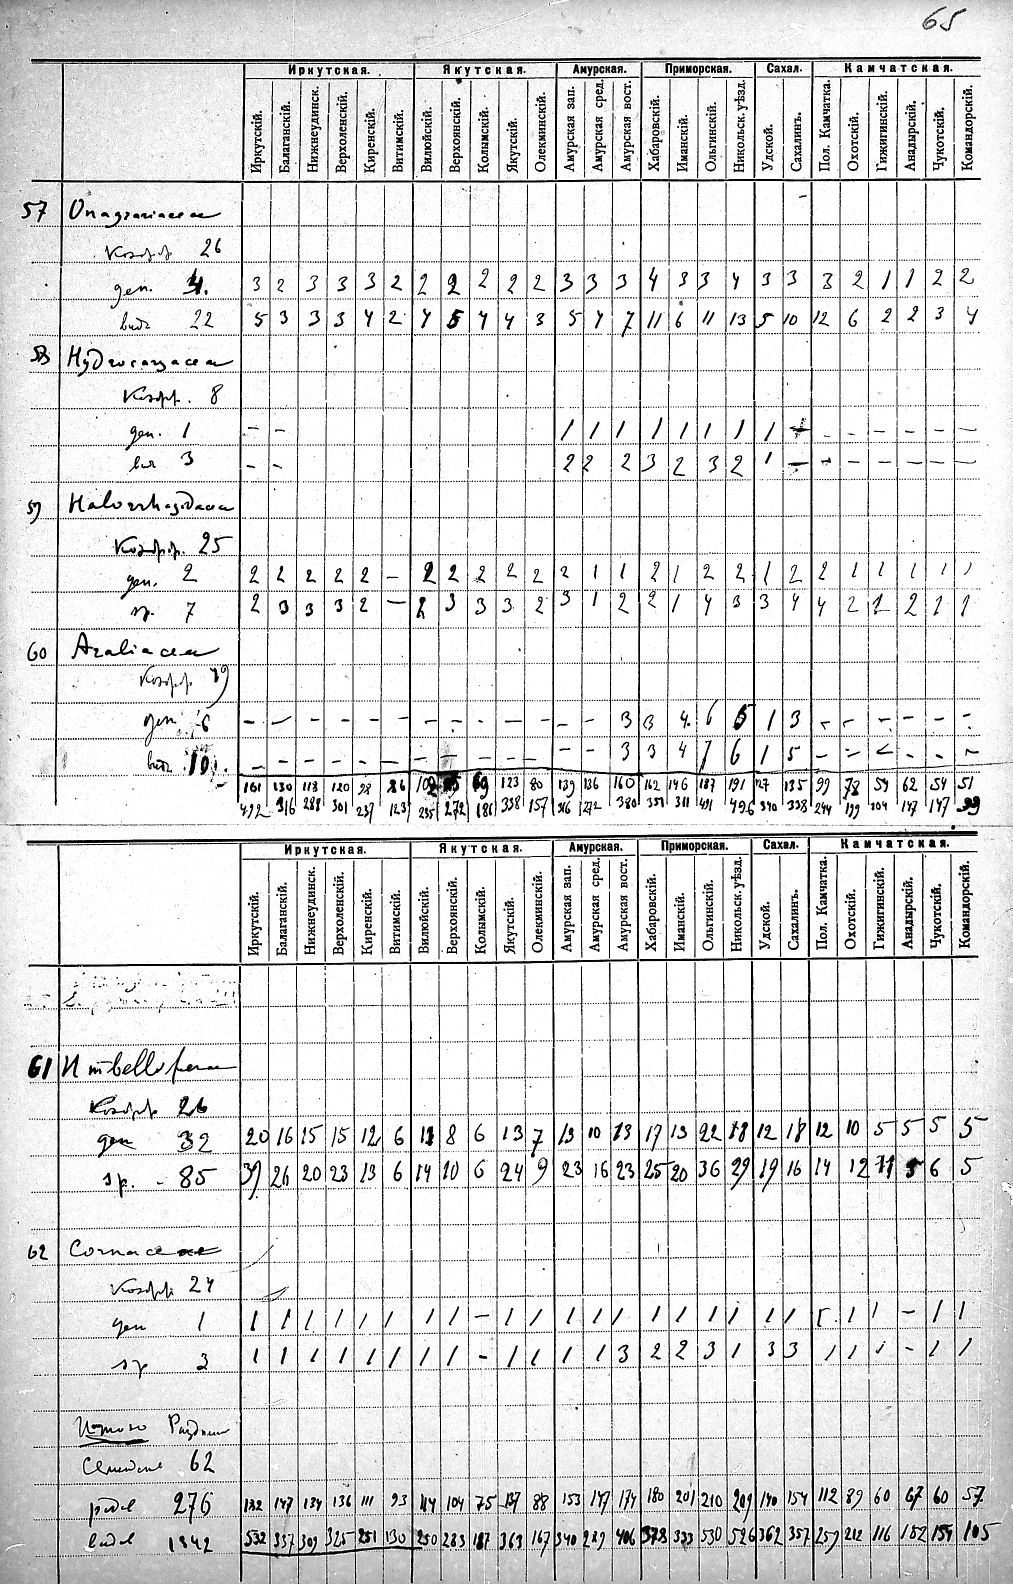 65
Иркутская. Якутская. Амурская. Приморская. Сахал. Камчатская.
Иркутскій. Балаганскій. Нижнеудинск. Верхоленскій. Киренскій. Витимскій. Вилюйскій. Верхоянскій. Колымскій. Якутскій. Олекминскій. Амурская зап. Амурская сред. Амурская вост. Хабаровскій. Иманскій. Ольгинскій. Никольск. уѣзд. Удской. Сахалинъ. Пол. Камчатка. Охотскій. Гижигинскій. Анадырскій. Чукотскій. Командорскій.
57 Onagrariaceae
26
ген. 4. 3 2 3 3 3 2 2 2 2 2 2 3 3 3 4 3 3 4 3 3 3 2 1 1 2 2
вид. 22 5 3 3 3 4 2 4 5 4 4 3 5 4 7 11 6 11 13 5 10 12 6 2 2 3 4
58 Hydrocaryaceae
8
ген. 1 – – 1 1 1 1 1 1 1 1 – – – – – – –
вид 3 – – 2 2 2 3 2 3 2 1 – – – – – – –
59 Halorrhagidaceae
25
ген. 2 2 2 2 2 2 – 2 2 2 2 2 2 1 1 2 1 2 2 1 2 2 1 1 1 1 1
sp. 7 2 3 3 3 2 – 2 3 3 3 2 3 1 2 2 1 4 3 3 4 4 2 2 2 1 1
60 Araliaceae
ген. 6 – – – – – – – – – – – – – 3 3 4 6 5 1 3 – – – – – –
вид. 10. – – – – – – – – – – – – – 3 3 4 7 6 1 5 – – – – – –
161 130 118 120 98 86 123 80 139 136 160 162 146 187 191 127 135 99 78 54 62 54 51
492 316 288 301 237 123 235 272 181 338 157 316 272 380 351 311 491 496 340 338 244 199 104 147 147 99
Иркутская. Якутская. Амурская. Приморская. Сахал. Камчатская.
Иркутскій. Балаганскій. Нижнеудинск. Верхоленскій. Киренскій. Витимскій. Вилюйскій. Верхоянскій. Колымскій. Якутскій. Олекминскій. Амурская зап. Амурская сред. Амурская вост. Хабаровскій. Иманскій. Ольгинскій. Никольск. уѣзд. Удской. Сахалинъ. Пол. Камчатка. Охотскій. Гижигинскій. Анадырскій. Чукотскій. Командорскій.
61 Umbelliferae
26
ген 32 20 16 15 15 12 6 11 8 6 13 7 13 10 13 17 13 22 18 12 18 12 10 5 5 5 5
sp. – 85 37 26 20 23 13 6 14 10 6 24 9 23 16 23 25 20 36 29 19 16 14 12 11 5 6 5
62 Cornaceae
24
ген 1 1 1 1 1 1 1 1 1 – 1 1 1 1 1 1 1 1 1 1 1 1 1 1 – 1 1
sp 3 1 1 1 1 1 1 1 1 – 1 1 1 1 3 2 2 3 1 3 3 1 1 1 – 1 1
Итого
62
родов 276 132 147 134 136 111 93 114 104 75 137 88 153 147 174 180 201 210 209 140 154 112 89 60 67 60 57
видов 1342 532 337 309 325 251 130 250 283 187 363 167 340 289 406 378 333 530 526 362 357 259 212 116 152 154 105